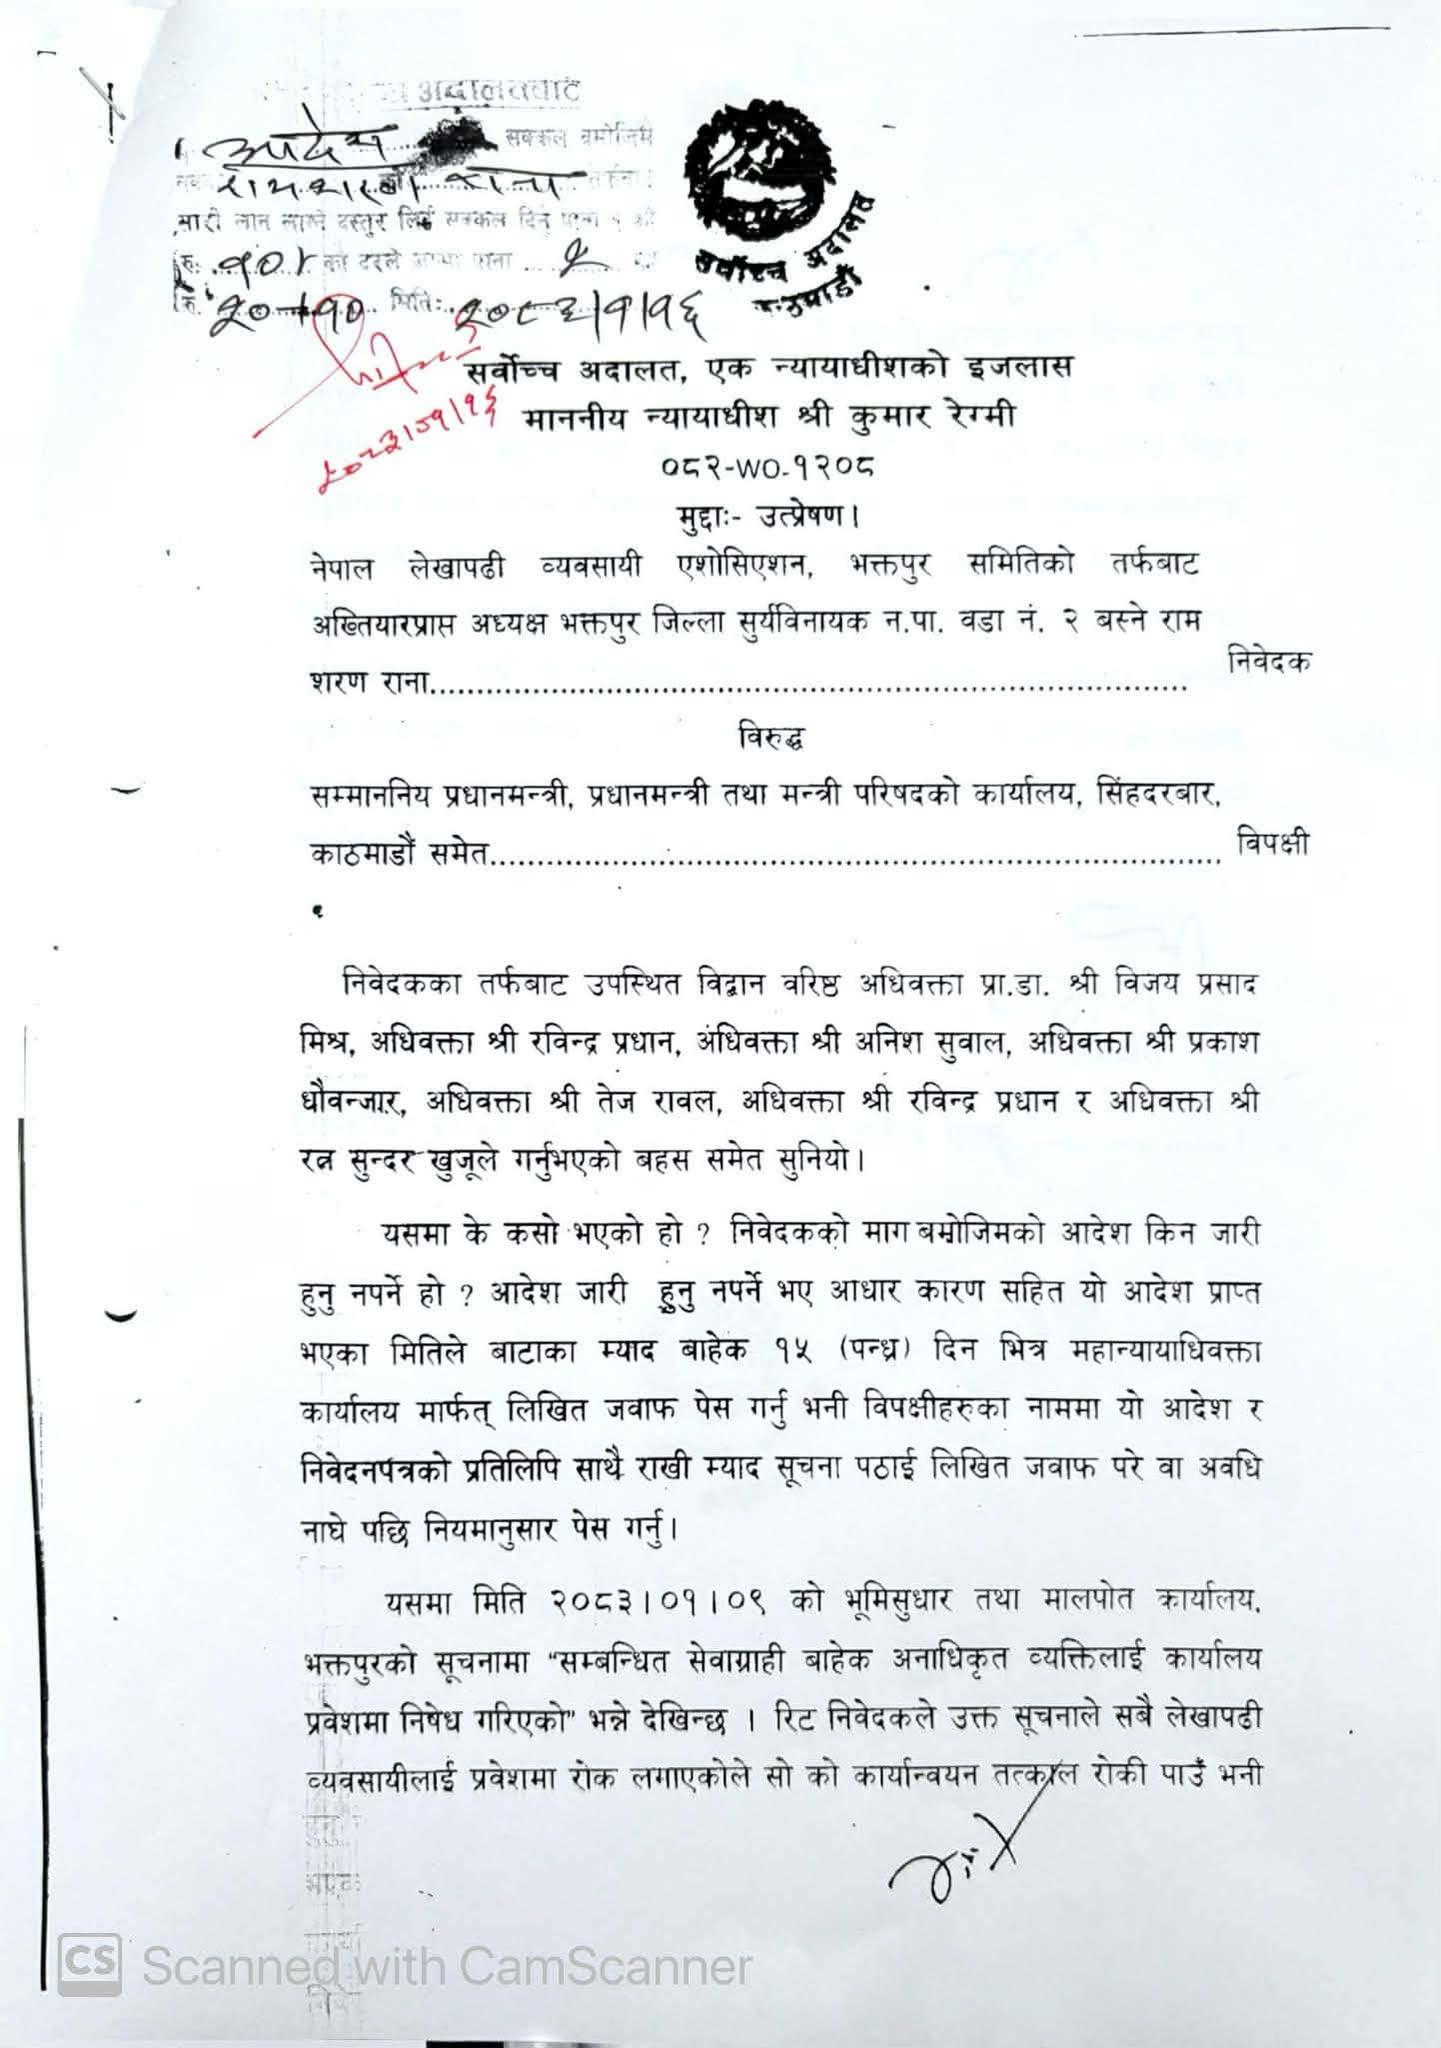 अदालतबाट
आदेश सक्कल बमोजिम
रामशरण राना
सारी लान लाग्ने दस्तुर लिई सक्कल दिन पाना १ को
रु. को दरले जम्मा पाना
मिति: २०८३|१|१६
सर्वोच्च अदालत
काठमाडौं
२०८३|०१|१६
सर्वोच्च अदालत, एक न्यायाधीशको इजलास
माननीय न्यायाधीश श्री कुमार रेग्मी
०८२-WO-१२०८
मुद्दाः- उत्प्रेषण।
नेपाल लेखापढी व्यवसायी एशोसिएशन, भक्तपुर समितिको तर्फबाट
अख्तियारप्राप्त अध्यक्ष भक्तपुर जिल्ला सुर्यविनायक न.पा. वडा नं. २ बस्ने राम
शरण राना................................................................................ निवेदक
विरुद्ध
सम्माननिय प्रधानमन्त्री, प्रधानमन्त्री तथा मन्त्री परिषदको कार्यालय, सिंहदरबार,
काठमाडौं समेत............................................................................. विपक्षी
निवेदकका तर्फबाट उपस्थित विद्वान वरिष्ठ अधिवक्ता प्रा.डा. श्री विजय प्रसाद
मिश्र, अधिवक्ता श्री रविन्द्र प्रधान, अधिवक्ता श्री अनिश सुवाल, अधिवक्ता श्री प्रकाश
धौवन्जार, अधिवक्ता श्री तेज रावल, अधिवक्ता श्री रविन्द्र प्रधान र अधिवक्ता श्री
रत्न सुन्दर खुजूले गर्नुभएको बहस समेत सुनियो।
यसमा के कसो भएको हो ? निवेदकको माग बमोजिमको आदेश किन जारी
हुनु नपर्ने हो ? आदेश जारी हुनु नपर्ने भए आधार कारण सहित यो आदेश प्राप्त
भएका मितिले बाटाका म्याद बाहेक १५ (पन्ध्र) दिन भित्र महान्यायाधिवक्ता
कार्यालय मार्फत् लिखित जवाफ पेस गर्नु भनी विपक्षीहरुका नाममा यो आदेश र
निवेदनपत्रको प्रतिलिपि साथै राखी म्याद सूचना पठाई लिखित जवाफ परे वा अवधि
नाघे पछि नियमानुसार पेस गर्नु।
यसमा मिति २०८३।०१।०९ को भूमिसुधार तथा मालपोत कार्यालय,
भक्तपुरको सूचनामा "सम्बन्धित सेवाग्राही बाहेक अनाधिकृत व्यक्तिलाई कार्यालय
प्रवेशमा निषेध गरिएको" भन्ने देखिन्छ । रिट निवेदकले उक्त सूचनाले सबै लेखापढी
व्यवसायीलाई प्रवेशमा रोक लगाएकोले सो को कार्यान्वयन तत्काल रोकी पाउँ भनी
CS Scanned with CamScanner